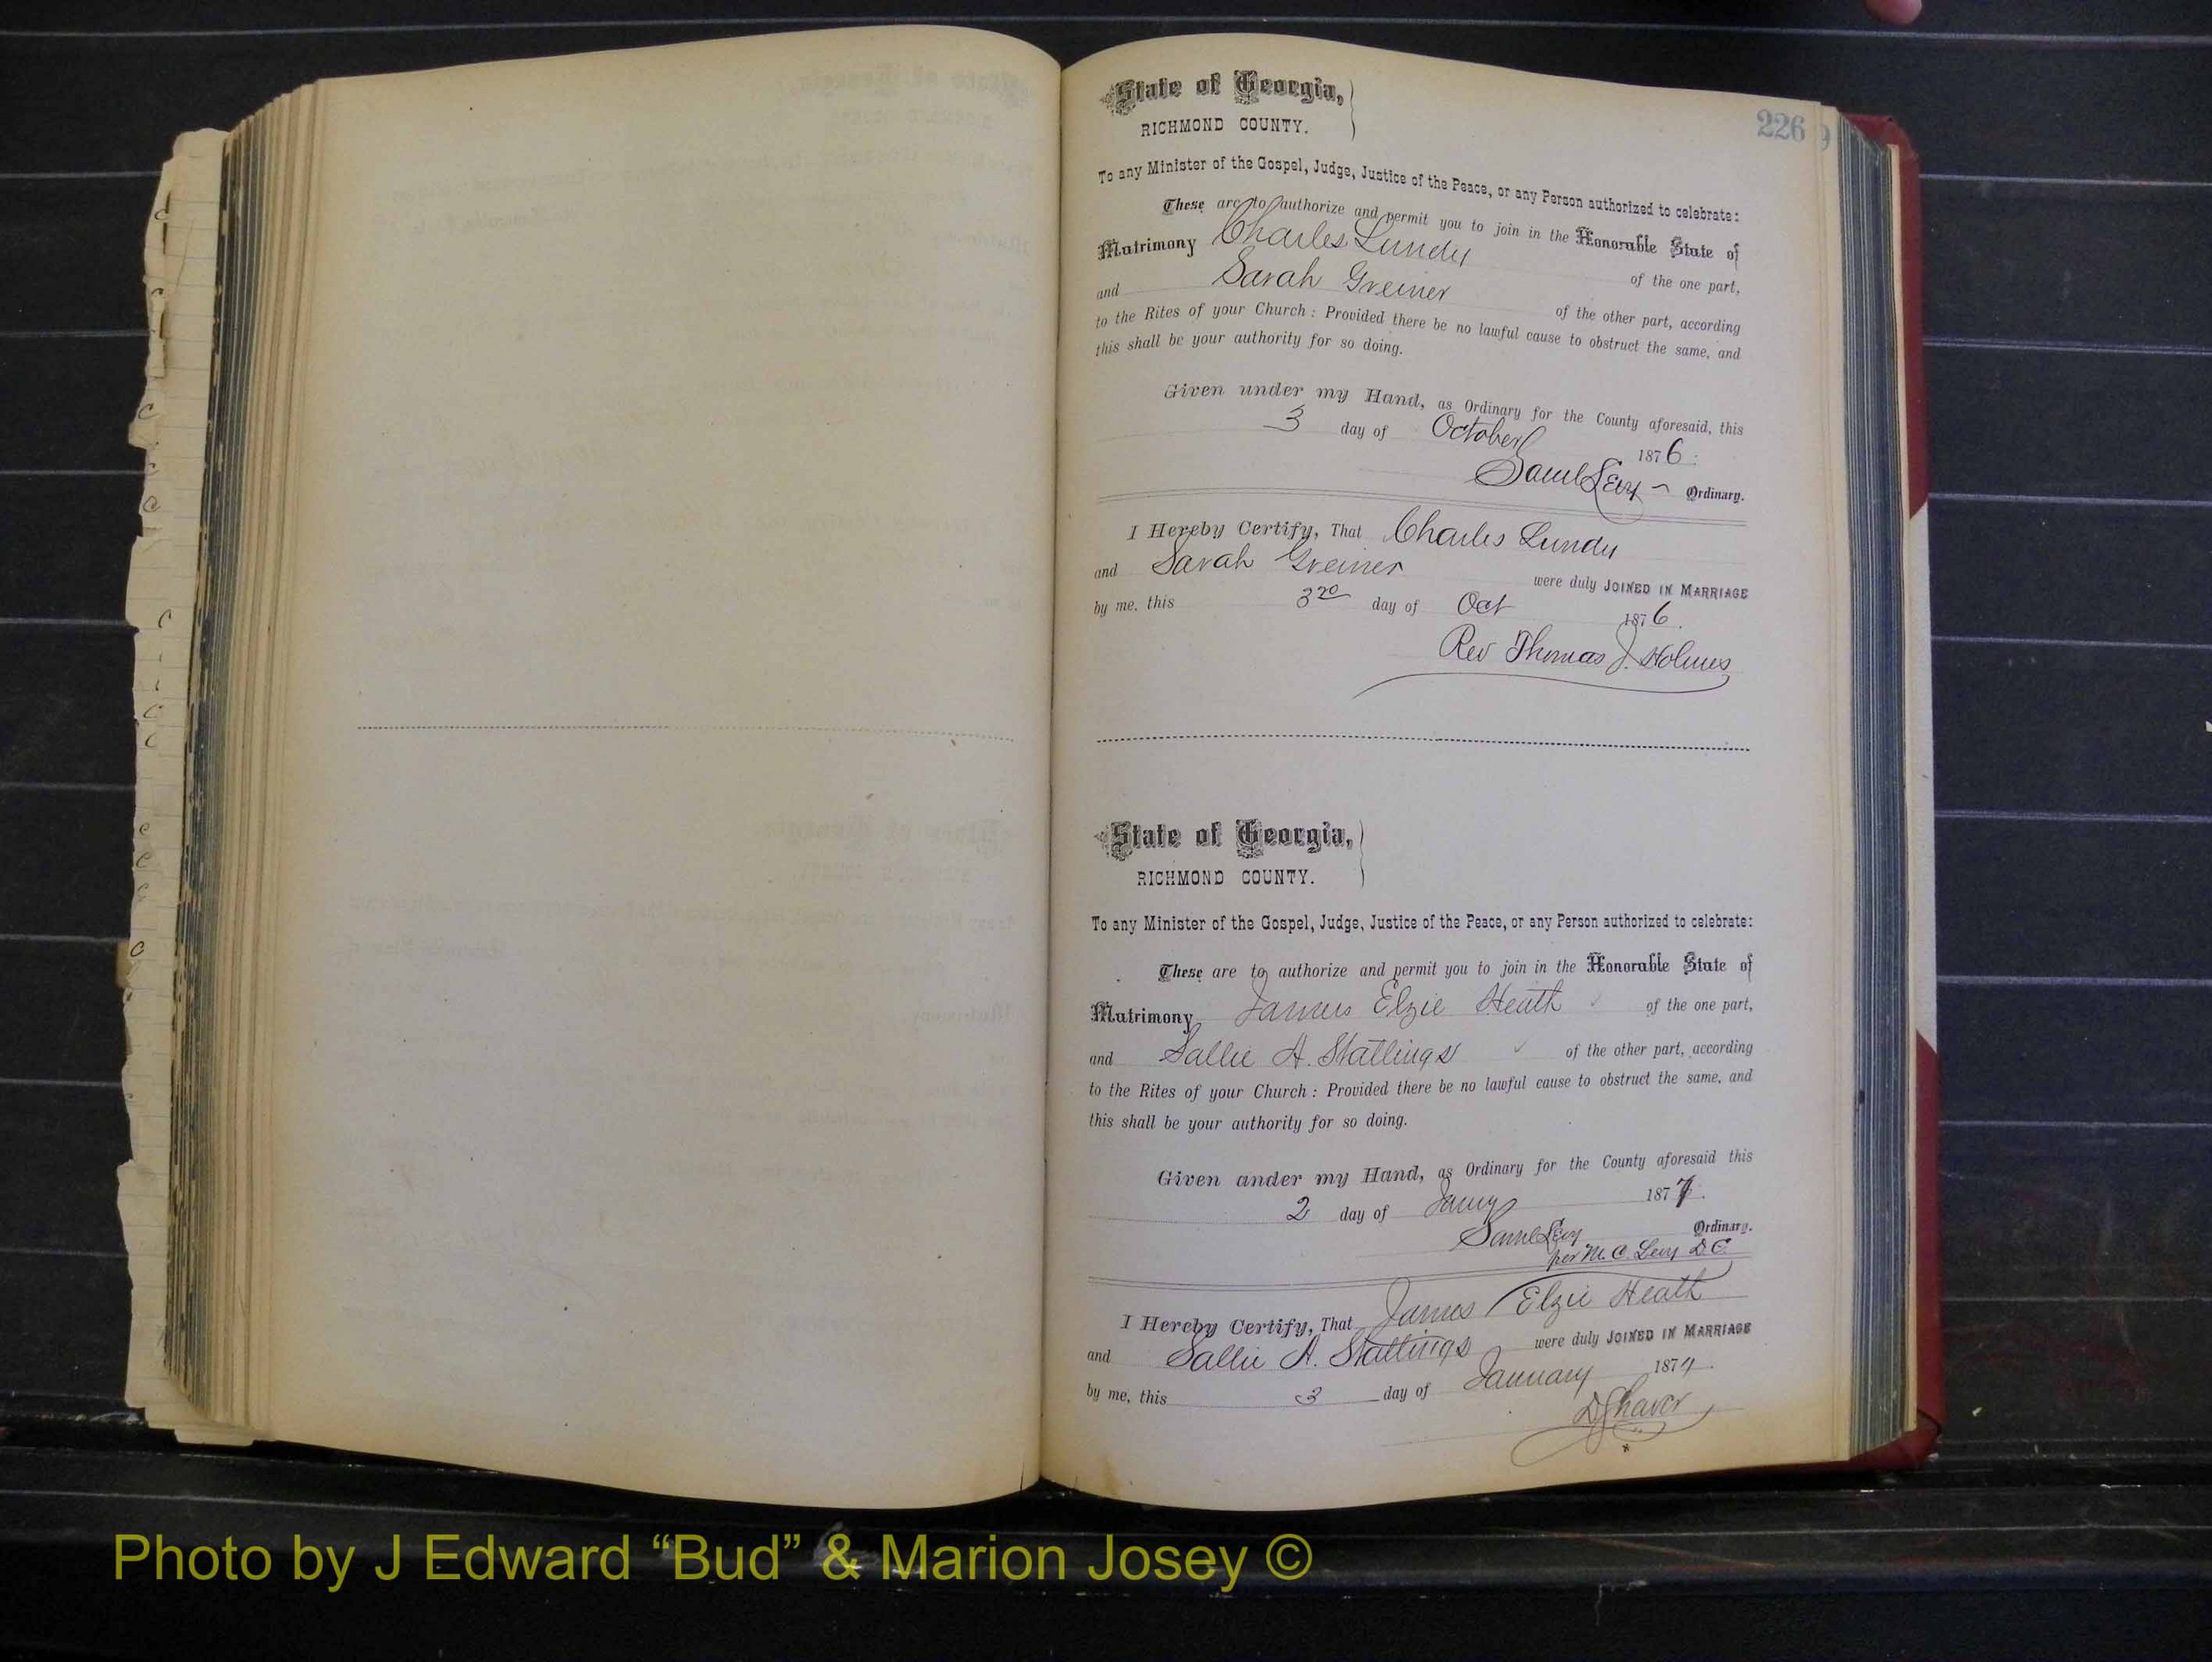 226
State of Georgia,
RICHMOND COUNTY.
To any Minister of the Gospel, Judge, Justice of the Peace, or any Person authorized to celebrate:
These are to authorize and permit you to join in the Honorable State of
Matrimony Charles Lundy of the one part,
and Sarah Greiner of the other part, according
to the Rites of your Church: Provided there be no lawful cause to obstruct the same, and
this shall be your authority for so doing.
Given under my Hand, as Ordinary for the County aforesaid, this
3 day of October 1876.
Saml Levy Ordinary.
I Hereby Certify, That Charles Lundy
and Sarah Greiner were duly JOINED IN MARRIAGE
by me, this 3rd day of Oct 1876.
Rev Thomas J. Holmes
State of Georgia,
RICHMOND COUNTY.
To any Minister of the Gospel, Judge, Justice of the Peace, or any Person authorized to celebrate:
These are to authorize and permit you to join in the Honorable State of
Matrimony James Elzie Heath of the one part,
and Sallie A. Stallings of the other part, according
to the Rites of your Church: Provided there be no lawful cause to obstruct the same, and
this shall be your authority for so doing.
Given under my Hand, as Ordinary for the County aforesaid this
2 day of Jany 1877.
Saml Levy Ordinary.
per M. C. Levy D. C.
I Hereby Certify, That James Elzie Heath
and Sallie A. Stallings were duly JOINED IN MARRIAGE
by me, this 3 day of January 1877.
D Shaver
Photo by J Edward “Bud” & Marion Josey ©